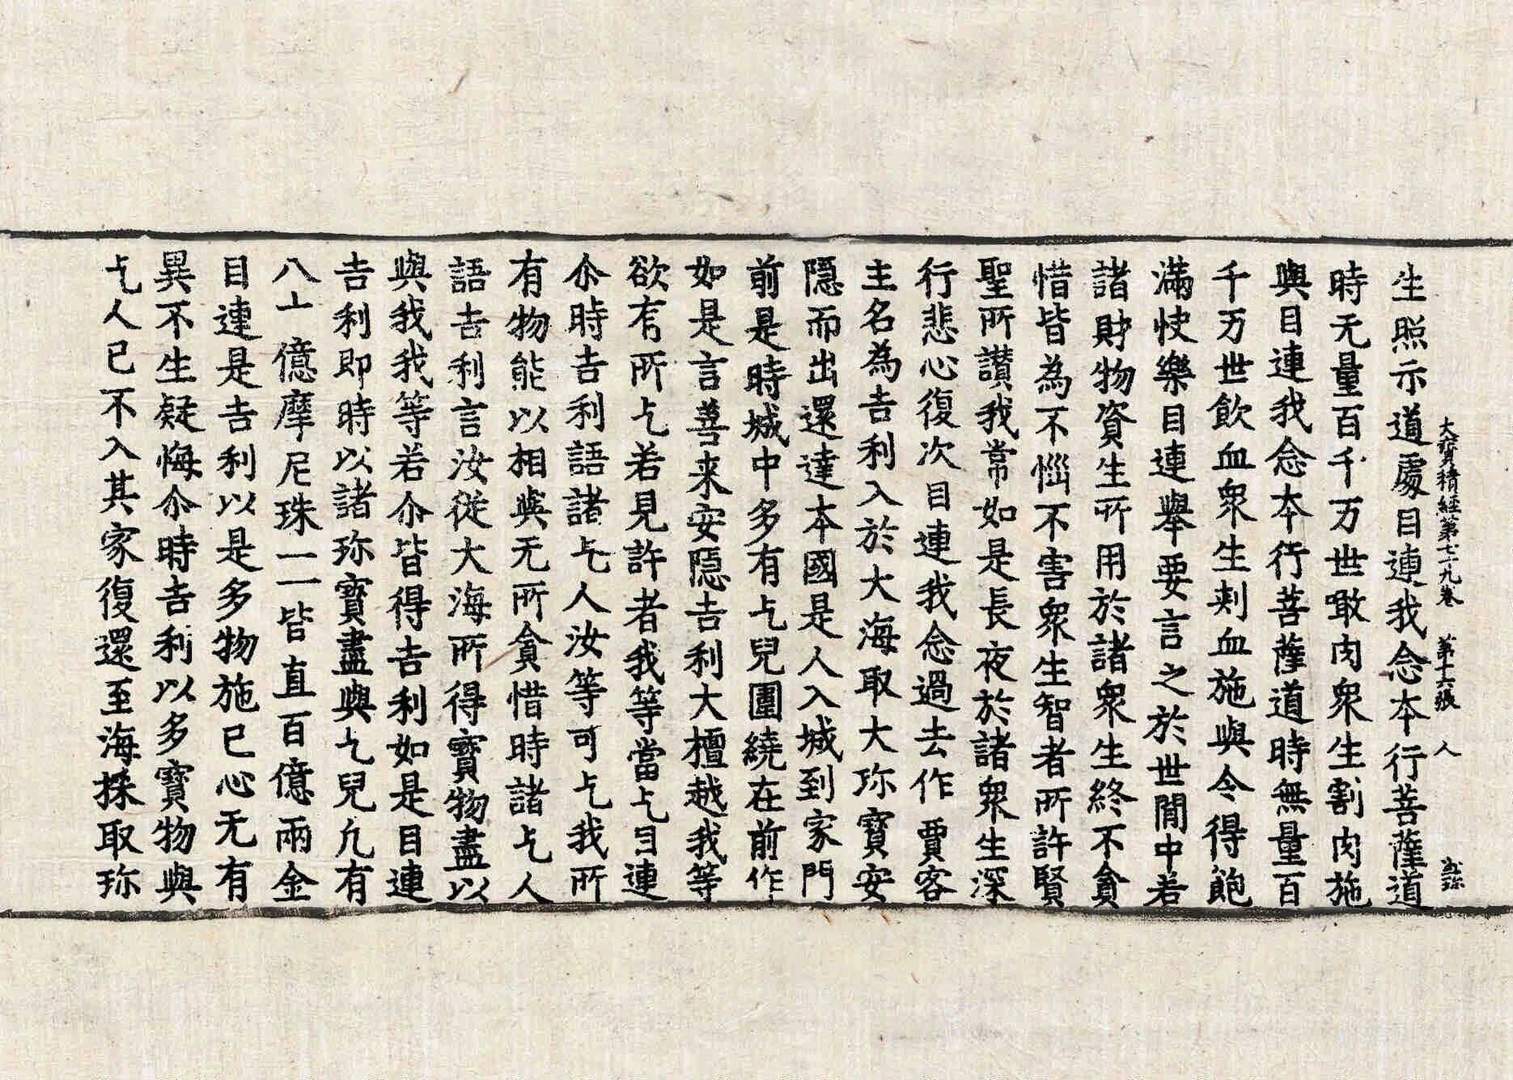 大寶積經第七十九卷 第十六張 人
生照示道處目連我念本行菩薩道
時无量百千万世噉肉衆生割肉施
與目連我念本行菩薩道時無量百
千万世飲血衆生刾血施與令得飽
滿快樂目連舉要言之於世間中若
諸財物資生所用於諸衆生終不貪
惜皆為不惱不害衆生智者所許賢
聖所讃我常如是長夜於諸衆生深
行悲心復次目連我念過去作賈客
主名為吉利入於大海取大珎寶安
隱而出還達本國是人入城到家門
前是時城中多有乞兒圍繞在前作
如是言善来安隱吉利大檀越我等
欲有所乞若見許者我等當乞目連
尒時吉利語諸乞人汝等可乞我所
有物能以相與无所貪惜時諸乞人
語吉利言汝從大海所得寶物盡以
與我我等若尒皆得吉利如是目連
吉利即時以諸珎寶盡與乞兒凡有
八十億摩尼珠一一皆直百億兩金
目連是吉利以是多物施已心无有
異不生疑悔尒時吉利以多寶物與
乞人已不入其家復還至海採取珎